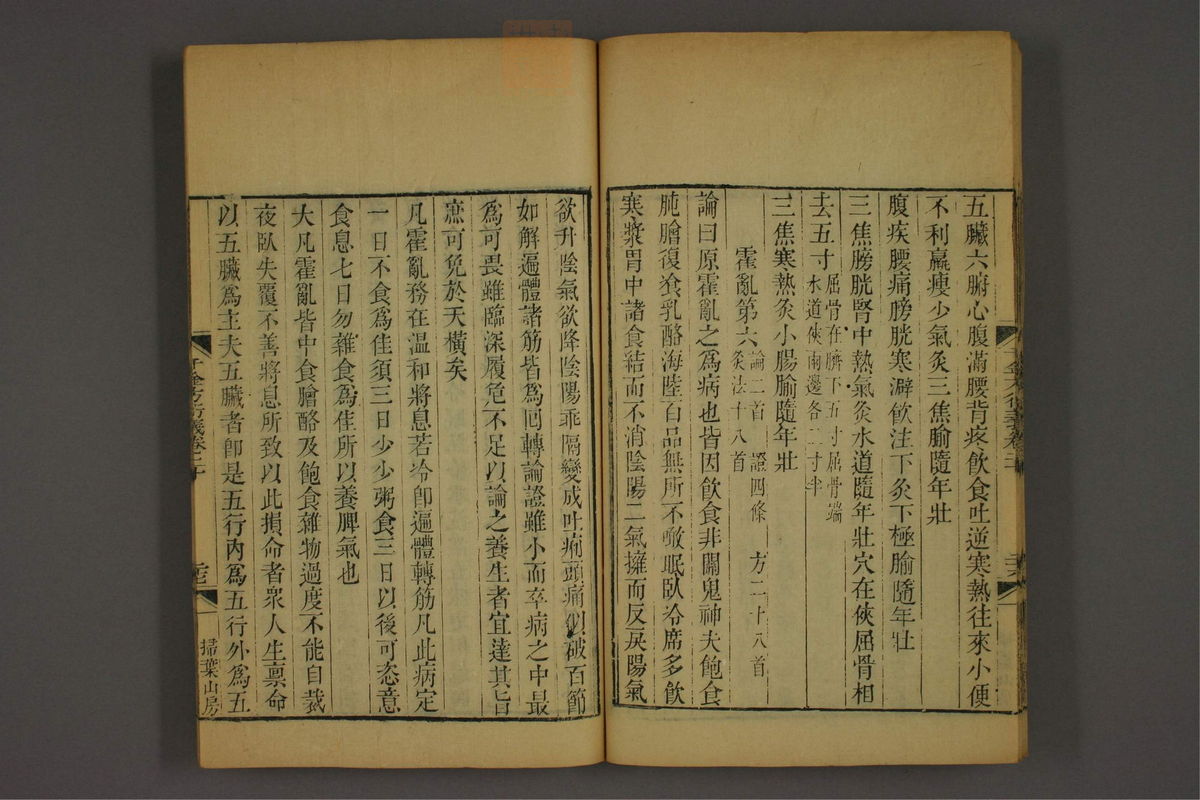 五臟六腑心腹滿腰背疼飲食吐逆寒熱往來小便
不利羸瘦少氣灸三焦腧隨年壯
腹疾腰痛膀胱寒澼飲注下灸下極腧隨年壯
三焦膀胱腎中熱氣灸水道隨年壯穴在俠屈骨相
去五寸屈骨在臍下五寸屈骨端水道俠兩邊各二寸半
三焦寒熱灸小腸腧隨年壯
霍亂第六論二首 證四條 方二十八首 灸法十八首
論曰原霍亂之為病也皆因飲食非關鬼神夫飽食
肫膾復飡乳酪海陸百品無所不噉眠臥冷席多飲
寒漿胃中諸食結而不消陰陽二氣擁而反戾陽氣
欲升陰氣欲降陰陽乖隔變成吐痢頭痛似破百節
如解遍體諸筋皆為囘轉論證雖小而卒病之中最
為可畏雖臨深履危不足以諭之養生者宜達其旨
庶可免於夭橫矣
凡霍亂務在溫和將息若冷卽遍體轉筋凡此病定
一日不食為佳須三日少少粥食三日以後可恣意
食息七日勿雜食為佳所以養脾氣也
大凡霍亂皆中食膾酪及飽食雜物過度不能自裁
夜臥失覆不善將息所致以此損命者衆人生禀命
以五臟為主夫五臟者卽是五行內為五行外為五
掃葉山房